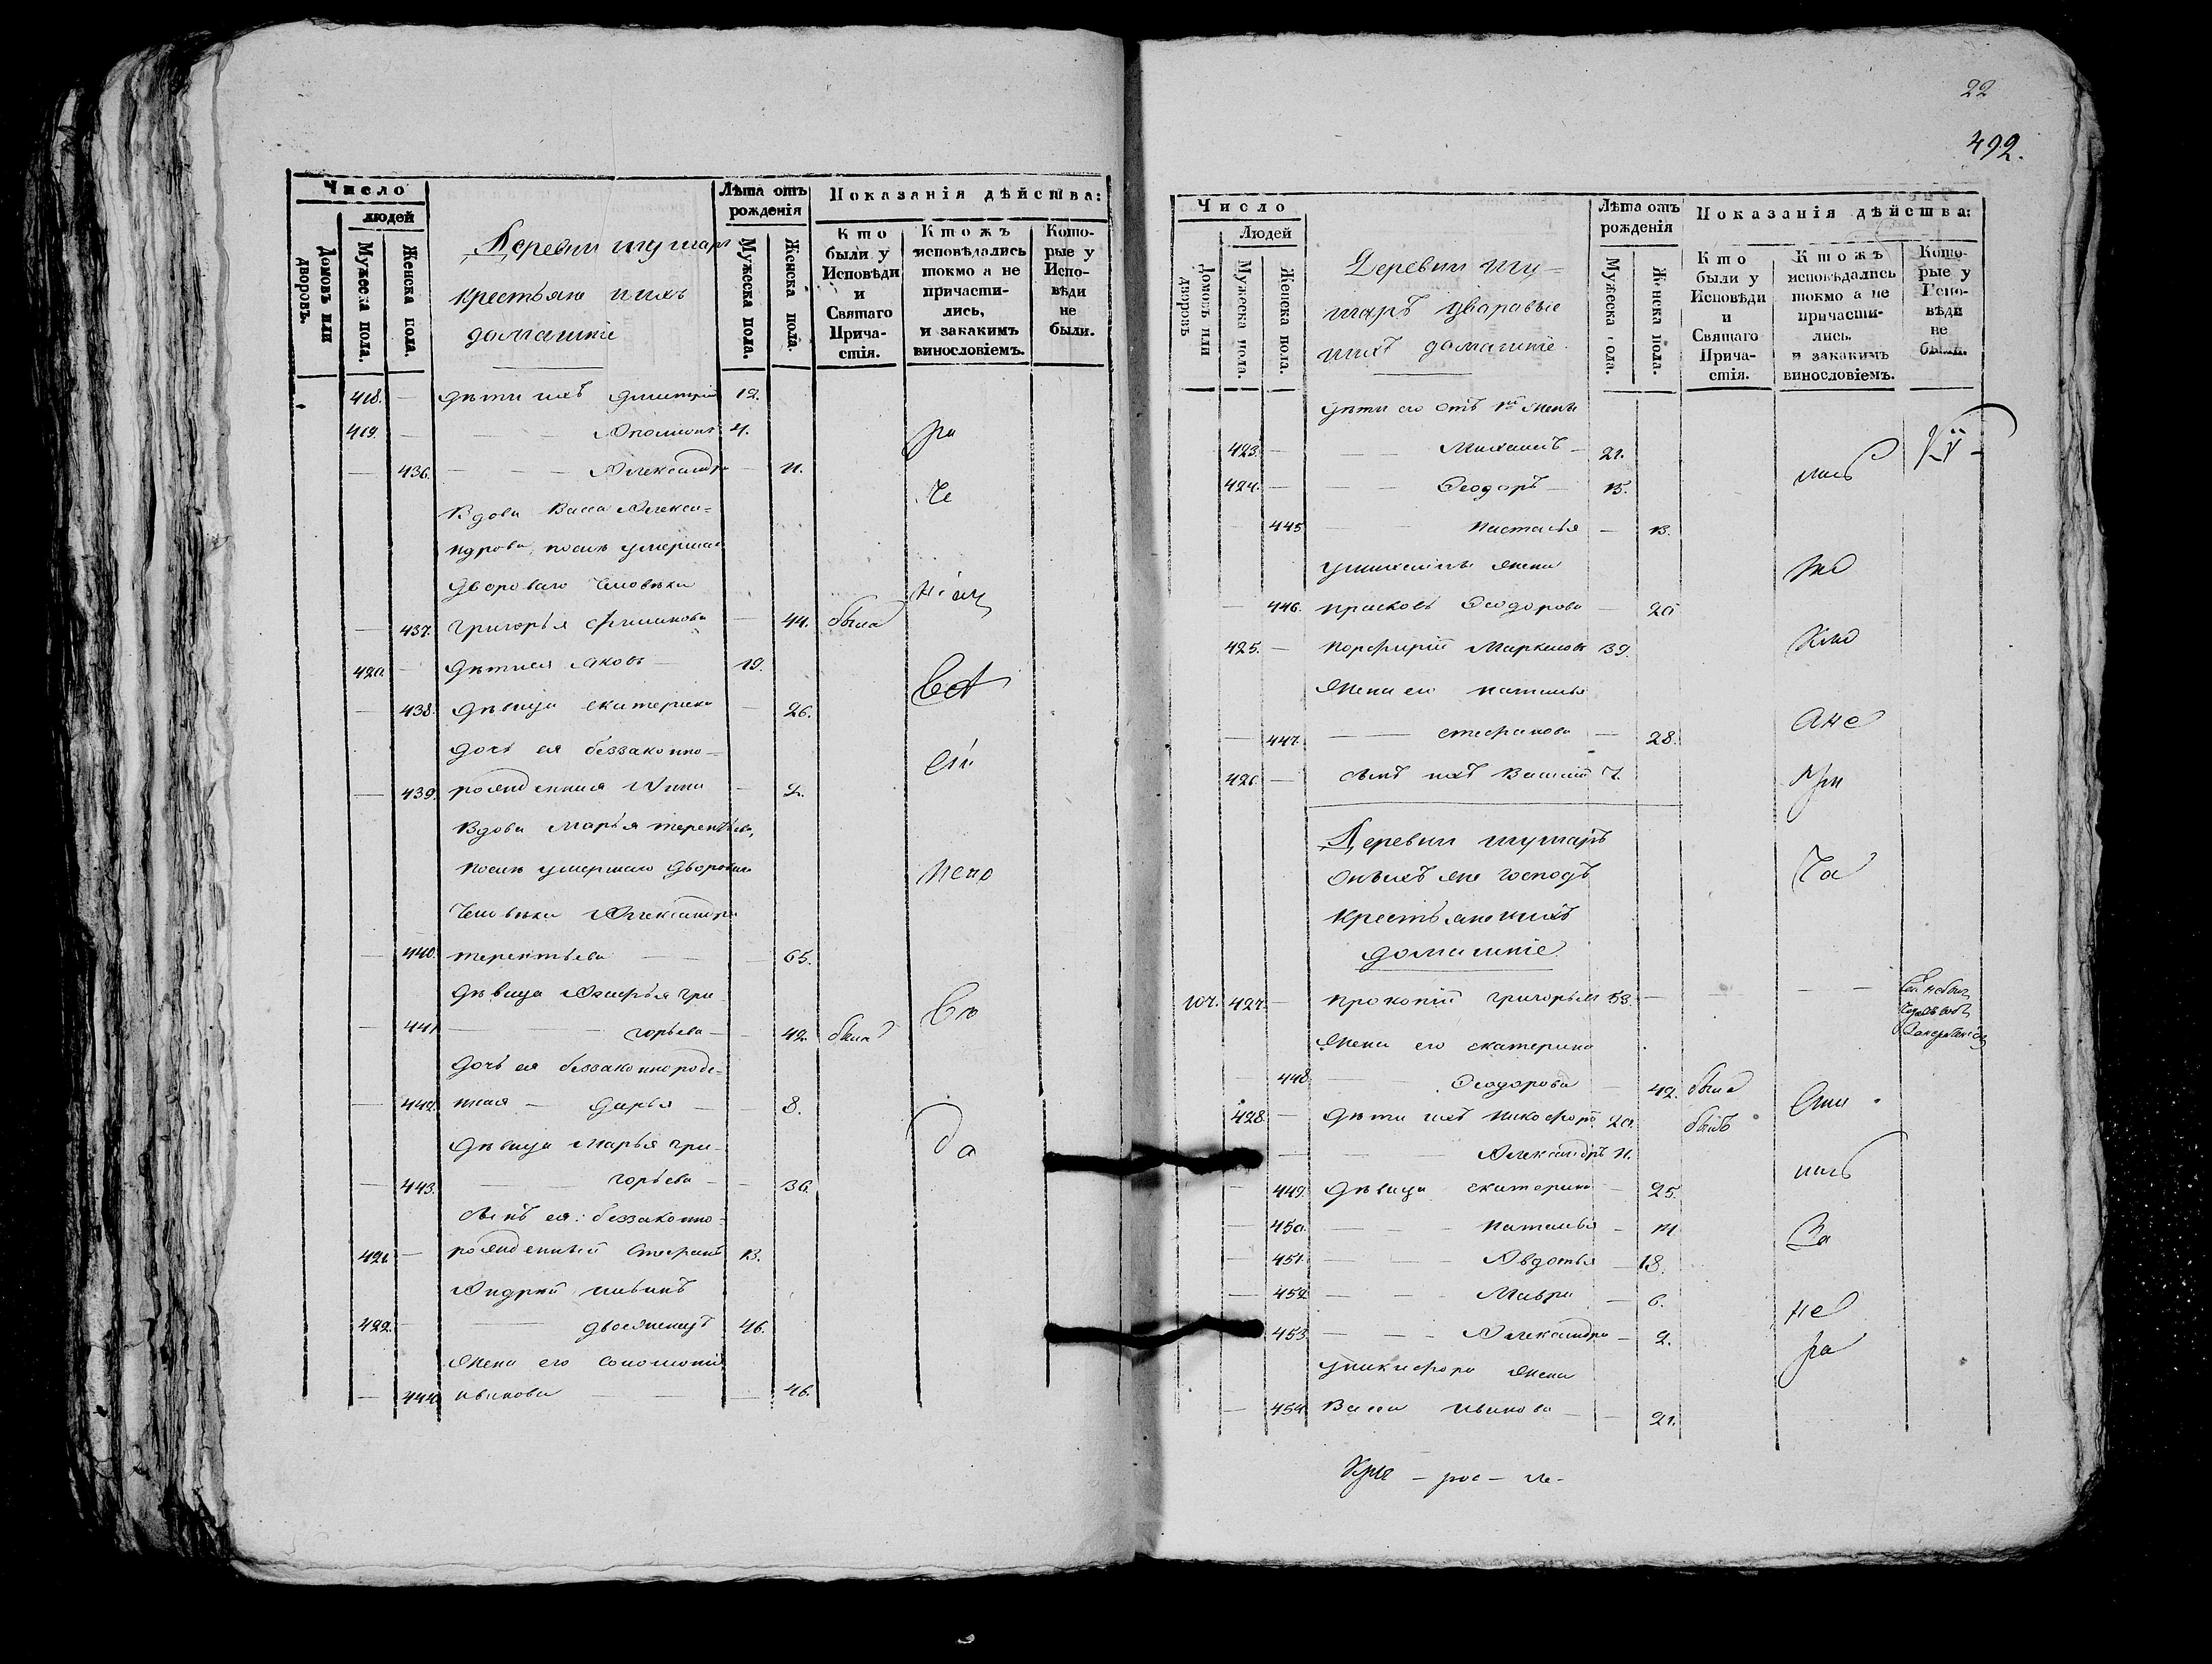 22
492.
Число
людей
Домовъ или дворовъ.
Мужеска пола.
Женска пола.
Деревни шушаръ
крестьяне ииxъ
домашніе
Лѣта отъ рожденія
Мужеска пола.
Женска пола.
Показанія дѣйства:
Кто были у Исповѣди и Святаго Причастія.
Ктожъ исповѣдались токмо а не причастились, и закакимъ винословіемъ.
Которые у Исповѣди не были.
418. — дѣти ихъ Димитрій 12.
419. — Аполлонъ 4.
— 436. — Александра — 11.
Вдова Васса Алекса=
ндрова, послѣ умершаго
двороваго человѣка
— 437. Григорья Филипова — 44. была
420. — дѣти ея Яковъ — 19.
— 438. дѣвица Екатерина — 26.
дочь ея беззаконно=
— 439. рожденная Анна — 2.
Вдова Марья Терентьева,
послѣ умершаго двороваго
человѣка Александра
— 440. Терентьева — 65.
дѣвица Агафья Гри
— 441. горьева — 42. была
дочь ея беззаконнорожде-
— 442. нная — Дарья — 8.
дѣвица Марья Гри-
— 443. горьева — 36.
сынъ ея: беззаконно=
421. — рожденный Стефанъ 13.
Андрей Ивановъ
422. — двоеженецъ 46.
жена его Соломонія
— 444. Иванова — 46.
ра
че
ніемъ
Свя
Непо
Св
да
Число
Людей
Домовъ или дворовъ
Мужеска пола.
Женска пола.
Деревни шу=
шаръ дворовые
ииxъ домашніе.
Лѣта отъ рожденія
Мужеска пола.
Женска пола.
Показанія дѣйства:
Кто были у Исповѣди и Святаго Причастія.
Ктожъ исповѣдались токмо а не причастились. и закакимъ винословіемъ.
Которые у Исповѣди не были.
дѣти его отъ 1й жены
423. — Михаилъ — 21.
424. — Ѳеодоръ — 15.
445. — Настасья — 13.
у Михаила жена
— 446. Прасковья Ѳеодорова — 20
425. — Порфирій Маркеловъ 39.
жена его Наталья
— 447. — Стефанова — 28.
426. — сынъ ихъ Василій 7.
Деревни шушаръ
онѣхъ же господъ
крестьяне ииxъ
домашніе.
107. 427. — Прокопій Григорьевъ 53. —
жена его Екатерина
— 448. — Ѳеодорова — 42. была
428. — дѣти ихъ Никифоръ 20. былъ
— Александръ 11.
— 449. дѣвица Екатерина — 25.
— 450. — Наталья —
— 451. — Авдотья — 18.
— 452. — Мавра — 6.
453. — Александра — 2.
у Никифора жена
— 454. Васса Иванова — 21.
лись
то
ане
При
ча
лись
За
не
ра